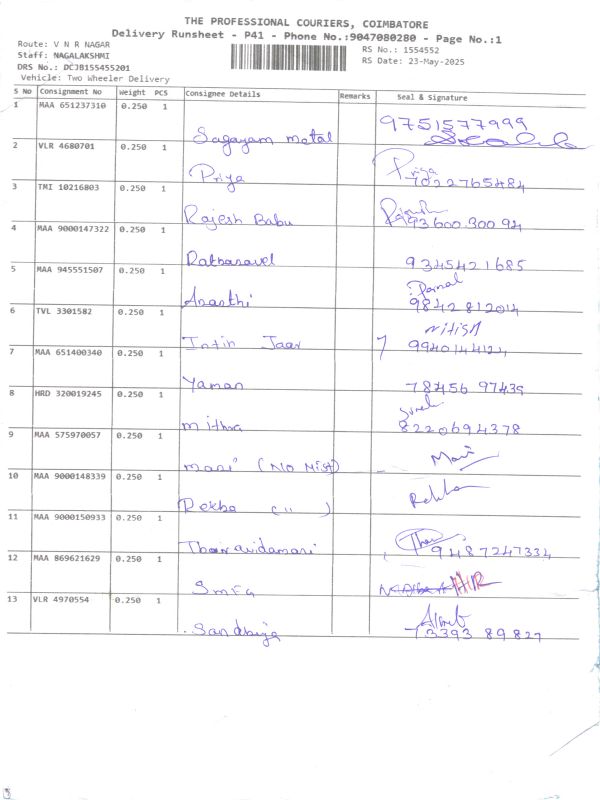 THE PROFESSIONAL COURIERS, COIMBATORE
Delivery Runsheet - P41 - Phone No.:9047080280 - Page No.:1
Route: V N R NAGAR
Staff: NAGALAKSHMI
DRS No.: DCJB155455201
Vehicle: Two Wheeler Delivery
RS No.: 1554552
RS Date: 23-May-2025
S No Consignment No Weight PCS Consignee Details Remarks Seal & Signature
1 MAA 651237310 0.250 1 Sagayam metal 9751577999
2 VLR 4680701 0.250 1 Priya Priya 7022765484
3 TMI 10216803 0.250 1 Rajesh Babu 93600 300 94
4 MAA 9000147322 0.250 1 9345421685
5 MAA 945551507 0.250 1 Ananthi 9842812014
6 TVL 3301582 0.250 1 Nitish 9940144124
7 MAA 651400340 0.250 1 Yaman 78456 97439
8 HRD 320019245 0.250 1 mithra 8220694378
9 MAA 575970057 0.250 1 mani Mani
10 MAA 9000148339 0.250 1 Rekha ( " ) Rekha
11 MAA 9000150933 0.250 1 9487247334
12 MAA 869621629 0.250 1
13 VLR 4970554 0.250 1 Sandhiya 73393 89827